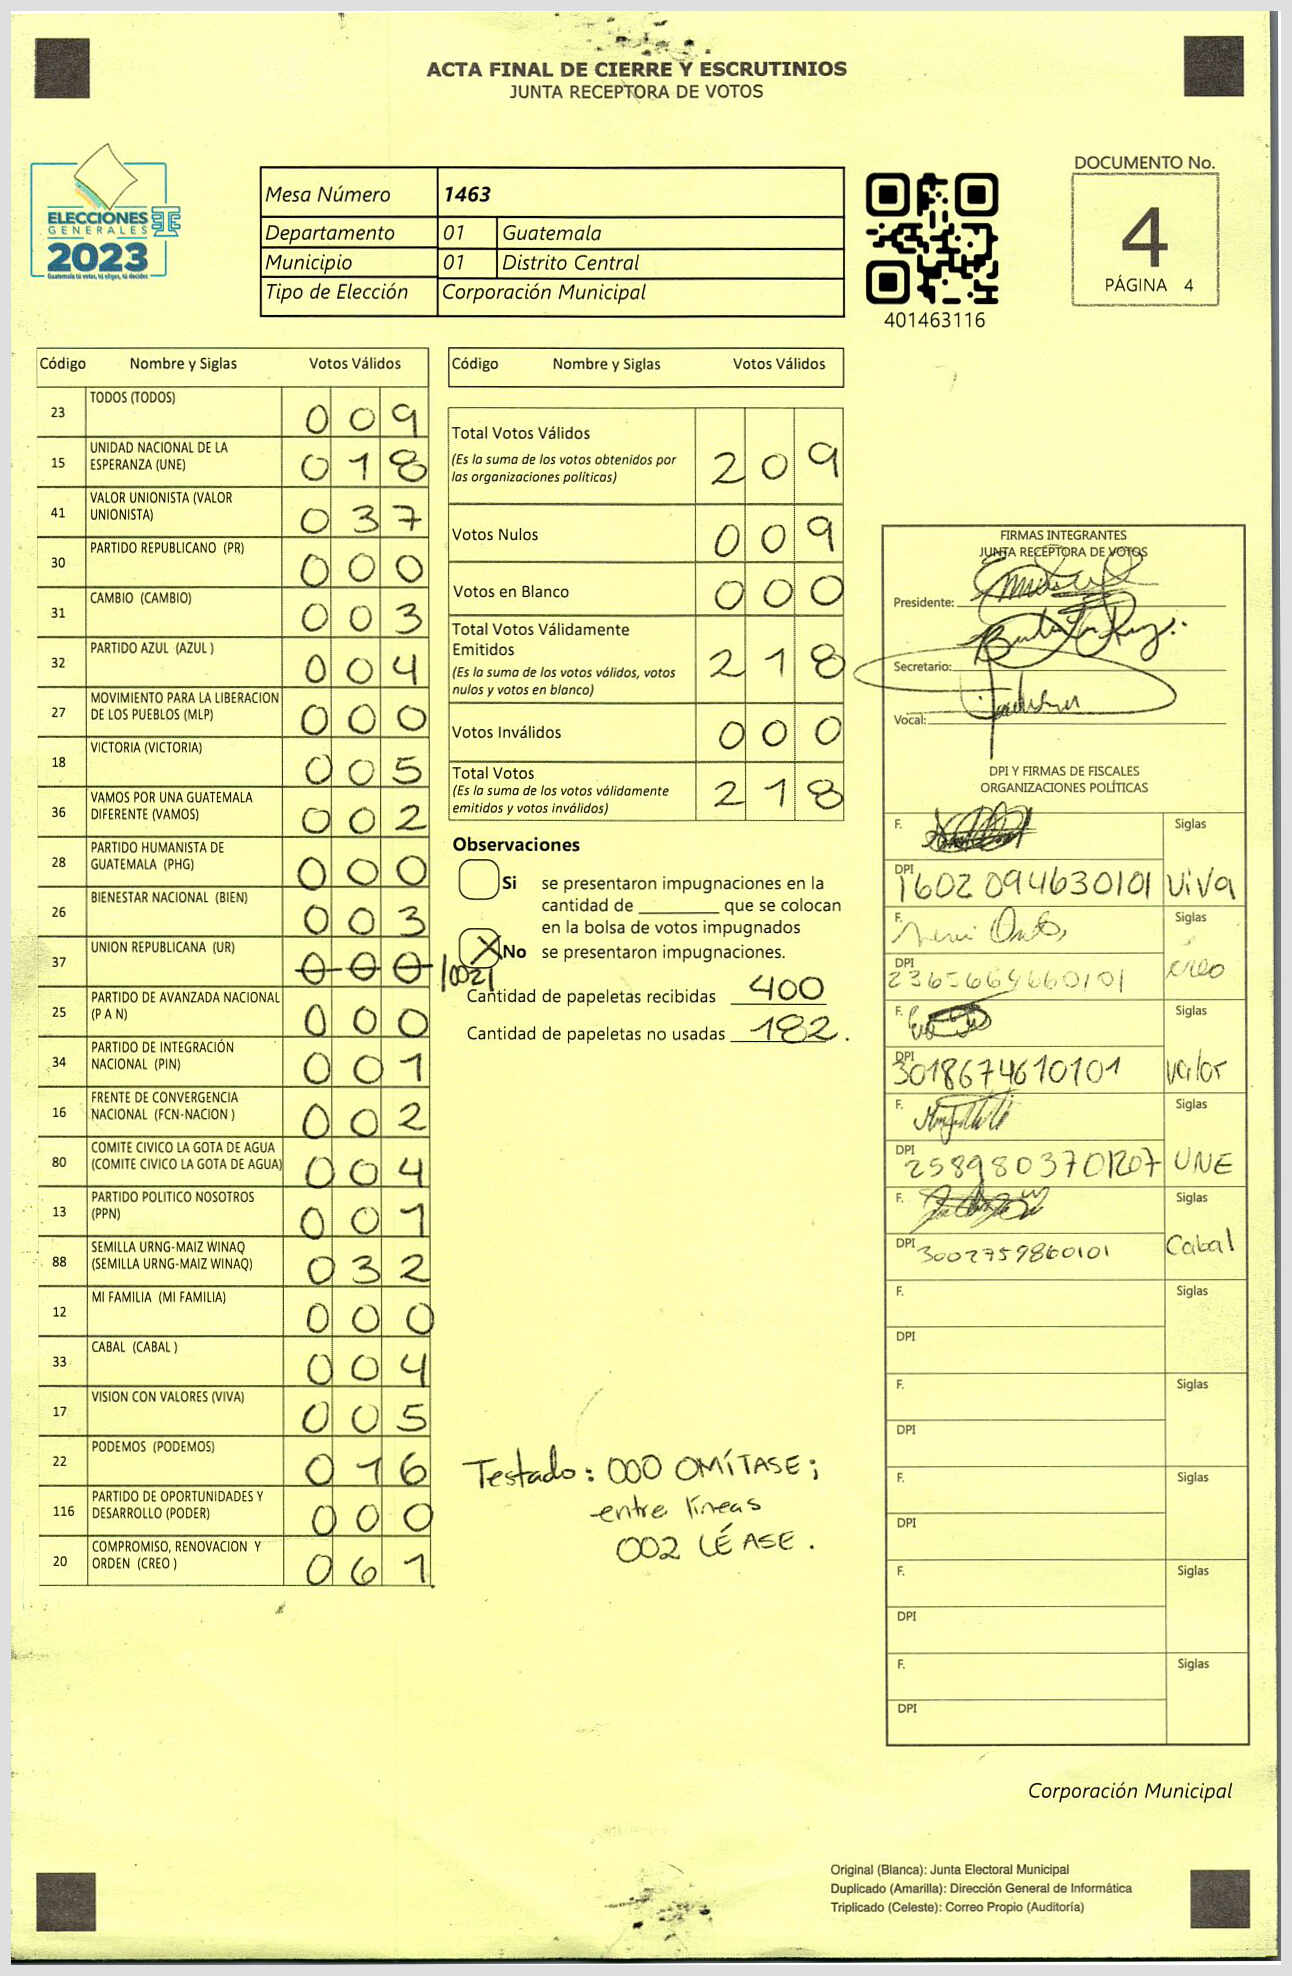 ACTA FINAL DE CIERRE Y ESCRUTINIOS
JUNTA RECEPTORA DE VOTOS
ELECCIONES
GENERALES
2023
Guatemala tú votas, tú eliges, tú decides
Mesa Número 1463
Departamento 01 Guatemala
Municipio 01 Distrito Central
Tipo de Elección Corporación Municipal
401463116
DOCUMENTO No.
4
PÁGINA 4
Código Nombre y Siglas Votos Válidos
23 TODOS (TODOS) 0 0 9
15 UNIDAD NACIONAL DE LA ESPERANZA (UNE) 0 1 8
41 VALOR UNIONISTA (VALOR UNIONISTA) 0 3 7
30 PARTIDO REPUBLICANO (PR) 0 0 0
31 CAMBIO (CAMBIO) 0 0 3
32 PARTIDO AZUL (AZUL ) 0 0 4
27 MOVIMIENTO PARA LA LIBERACION DE LOS PUEBLOS (MLP) 0 0 0
18 VICTORIA (VICTORIA) 0 0 5
36 VAMOS POR UNA GUATEMALA DIFERENTE (VAMOS) 0 0 2
28 PARTIDO HUMANISTA DE GUATEMALA (PHG) 0 0 0
26 BIENESTAR NACIONAL (BIEN) 0 0 3
37 UNION REPUBLICANA (UR) 0 0 0 /002/
25 PARTIDO DE AVANZADA NACIONAL (P A N) 0 0 0
34 PARTIDO DE INTEGRACIÓN NACIONAL (PIN) 0 0 1
16 FRENTE DE CONVERGENCIA NACIONAL (FCN-NACION ) 0 0 2
80 COMITE CIVICO LA GOTA DE AGUA (COMITE CIVICO LA GOTA DE AGUA) 0 0 4
13 PARTIDO POLITICO NOSOTROS (PPN) 0 0 1
88 SEMILLA URNG-MAIZ WINAQ (SEMILLA URNG-MAIZ WINAQ) 0 3 2
12 MI FAMILIA (MI FAMILIA) 0 0 0
33 CABAL (CABAL ) 0 0 4
17 VISION CON VALORES (VIVA) 0 0 5
22 PODEMOS (PODEMOS) 0 1 6
116 PARTIDO DE OPORTUNIDADES Y DESARROLLO (PODER) 0 0 0
20 COMPROMISO, RENOVACION Y ORDEN (CREO ) 0 6 1
Código Nombre y Siglas Votos Válidos
Total Votos Válidos 2 0 9
(Es la suma de los votos obtenidos por
las organizaciones políticas)
Votos Nulos 0 0 9
Votos en Blanco 0 0 0
Total Votos Válidamente
Emitidos 2 1 8
(Es la suma de los votos válidos, votos
nulos y votos en blanco)
Votos Inválidos 0 0 0
Total Votos 2 1 8
(Es la suma de los votos válidamente
emitidos y votos inválidos)
Observaciones
Si se presentaron impugnaciones en la
cantidad de ________ que se colocan
en la bolsa de votos impugnados
X No se presentaron impugnaciones.
Cantidad de papeletas recibidas 400
Cantidad de papeletas no usadas 182.
Testado: 000 OMÍTASE;
entre líneas
002 LÉASE.
FIRMAS INTEGRANTES
JUNTA RECEPTORA DE VOTOS
Presidente:
Secretario:
Vocal:
DPI Y FIRMAS DE FISCALES
ORGANIZACIONES POLÍTICAS
F. Siglas
DPI 1602094630101 ViVa
F. Siglas
DPI 2365669660101 creo
F. Siglas
DPI 3018674610101 valor
F. Siglas
DPI 2589803701207 UNE
F. Siglas
DPI 3002759860101 Cabal
F. Siglas
DPI
F. Siglas
DPI
F. Siglas
DPI
F. Siglas
DPI
F. Siglas
DPI
Corporación Municipal
Original (Blanca): Junta Electoral Municipal
Duplicado (Amarilla): Dirección General de Informática
Triplicado (Celeste): Correo Propio (Auditoría)